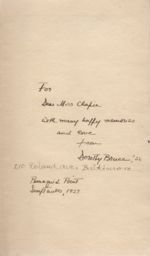 For
Dear Miss Chapin
with many happy memories
and love
from
Dorothy Bruce, '26
210 Roland Ave. Baltimore
Pemaquid Point
1927